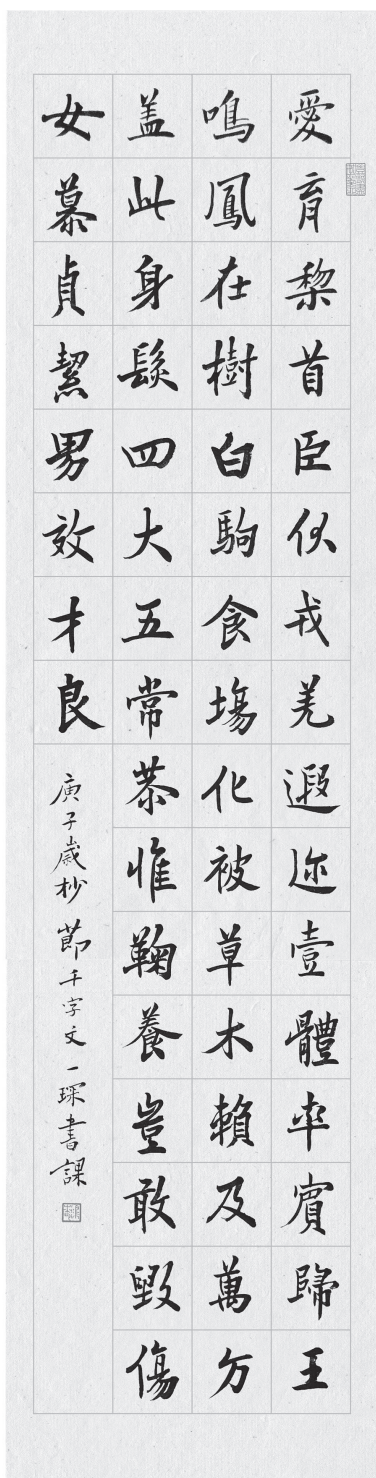 愛育黎首臣伏戎羌遐迩壹體率賓歸王
鳴鳳在樹白駒食塲化被草木賴及萬方
盖此身髮四大五常恭惟鞠養豈敢毀傷
女慕貞絜男效才良
庚子歲杪節千字文一琛書課